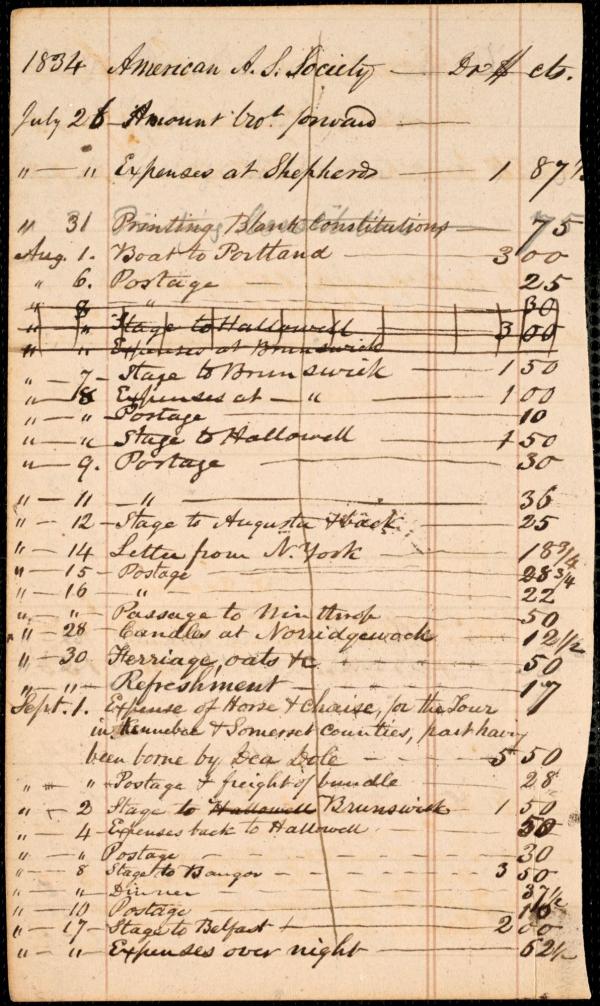 1834 American A. S. Society — Dr $ cts.
July 26 Amount brot. forward —
" — " Expenses at Shepherds — 1 87½
" 31 Printing Blank Constitutions 75
Aug. 1. Boat to Portland — 3 00
" 6. Postage — 25
" 8 — " — 30
" — " Stage to Hallowell — 3 00
" — " Expenses at Brunswick
" — 7 — Stage to Brunswick — 1 50
" — 8 Expenses at — " — 1 00
" — " Postage — 10
" — " Stage to Hallowell — 1 50
" — 9. Postage — 30
" — 11 — " — 36
" — 12 — Stage to Augusta & back — 25
" — 14 Letter from N. York — 18 3/4
" — 15 — Postage — 28 3/4
" — 16 — " — 22
" — " Passage to Winthrop — 50
" — 28 — Candles at Norridgewock — 12 1/2
" — 30 Ferriage, oats &c — 50
" — " Refreshment — 17
Sept. 1. Expense of Horse & Chaise, for the Tour
in Kennebec & Somerset counties, part having
been borne by Dea Dole — 5 50
" — " Postage & freight of bundle 28
" — 2 Stage to Hallowell Brunswick — 1 50
" — 4 Expenses back to Hallowell — 50
" — " Postage — 30
" — 8 Stage to Bangor — 3 50
" — " Dinner — 37½
" — 10 Postage — 10
" — 17 — Stage to Belfast — 2 00
" — " Expenses over night — 62½